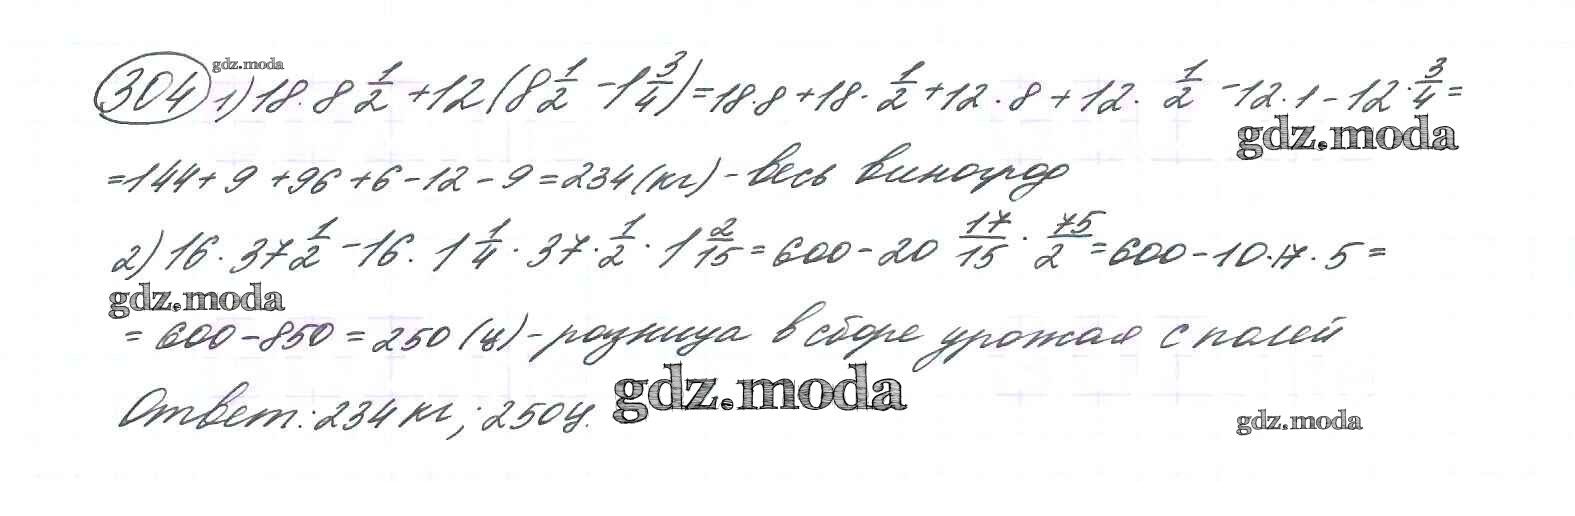 304 gdz.moda 1) 18·8 1/2 + 12(8 1/2 - 1 3/4) = 18·8 + 18· 1/2 + 12·8 + 12· 1/2 - 12·1 - 12· 3/4 =
gdz.moda
= 144 + 9 + 96 + 6 - 12 - 9 = 234 (кг) - весь виноград
2) 16·37 1/2 - 16·1 1/4 · 37· 1/2 · 1 2/15 = 600 - 20 17/15 · 75/2 = 600 - 10·17·5 =
gdz.moda
= 600 - 850 = 250 (ц) - разница в сборе урожая с полей
gdz.moda
Ответ: 234 кг; 250 ц.
gdz.moda